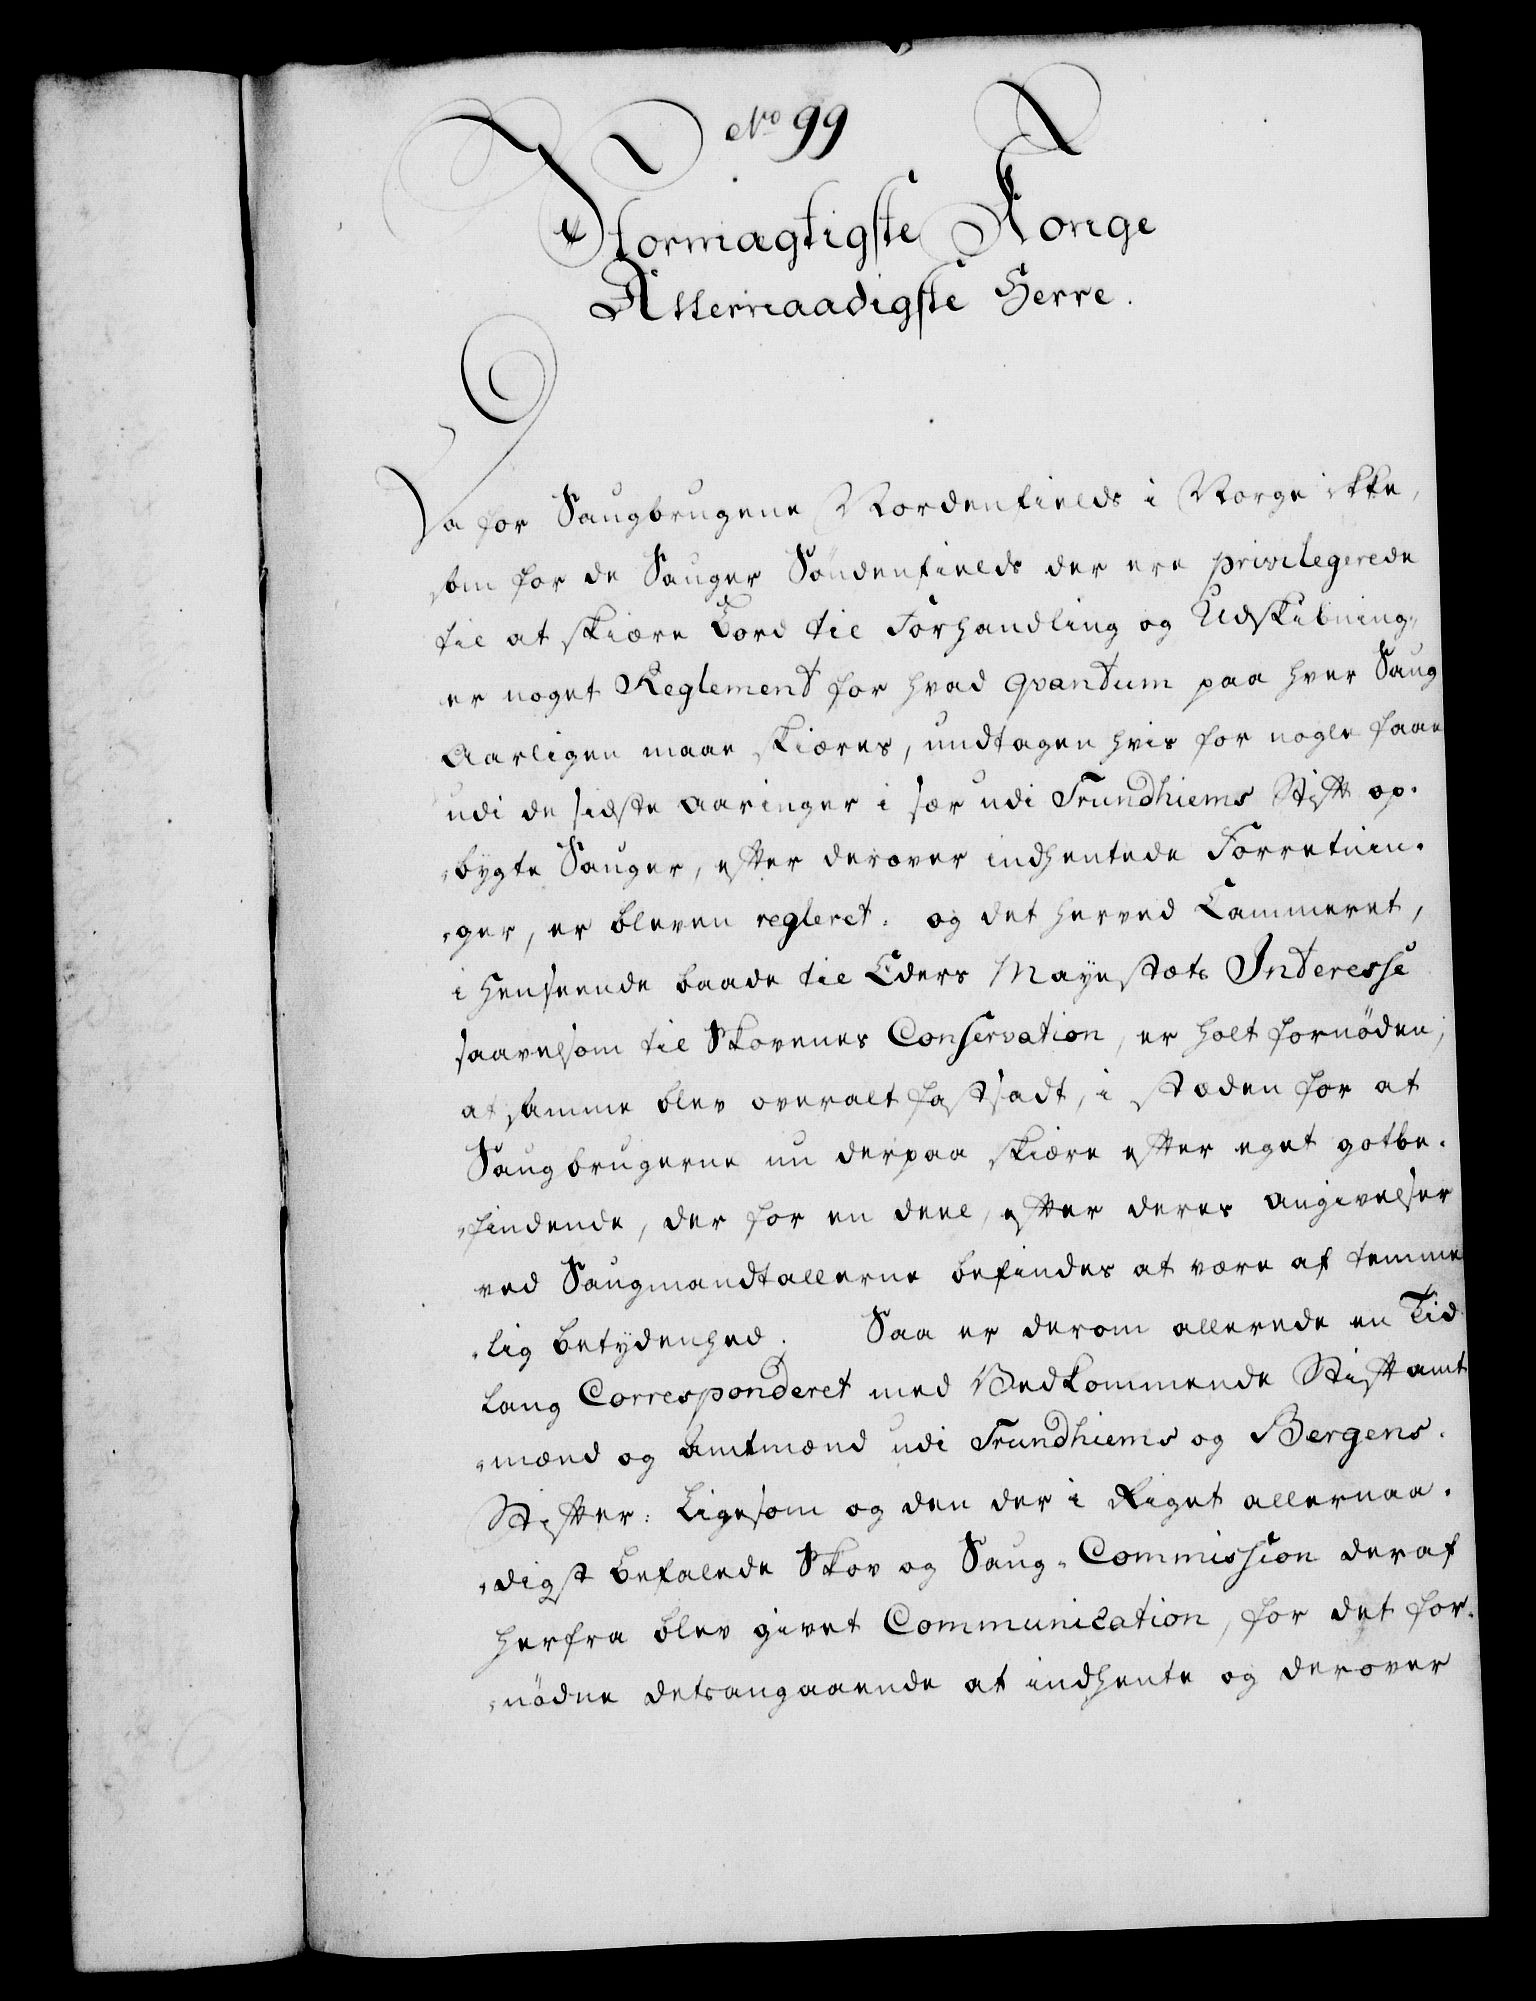 No 99
Stormægtigste Konge
Allernaadigste Herre.
Da for Saugbrugene Nordenfields i Norge ikke,
som for de Sauger Söndenfields der ere privilegerede
til at skiære Bord til Forhandling og Udskibning,
er noget Reglement for hvad qvantum paa hver Saug
Aarligen maae skiæres, undtagen hvis for nogle faae
udi de sidste Aaringer i sær udi Trundhiems Stift op-
bygte Sauger, efter derover indhentede Forretnin-
ger, er bleven regleret: og det herved Cammeret,
i Henseende baade til Eders Mayestæts Interesse
saavelsom til Skovenes Conservation, er holt fornöden,
at samme blev overalt fastsadt, i stæden for at
Saugbrugerne nu derpaa skiære efter eget gotbe-
findende, der for en deel, efter deres angivelser
ved Saugmandtallerne befindes at være af temme
lig betydenhed. Saa er derom allerede en Tid
lang Corresponderet med Vedkommende Stiftamt
mænd og Amtmænd udi Trundhiems og Bergens
Stifter: Ligesom og den der i Riget allernaa-
digst befalede Skov og Saug-Commission deraf
herfra blev givet Communication, for det for-
nödne detsangaaende at indhente og derover